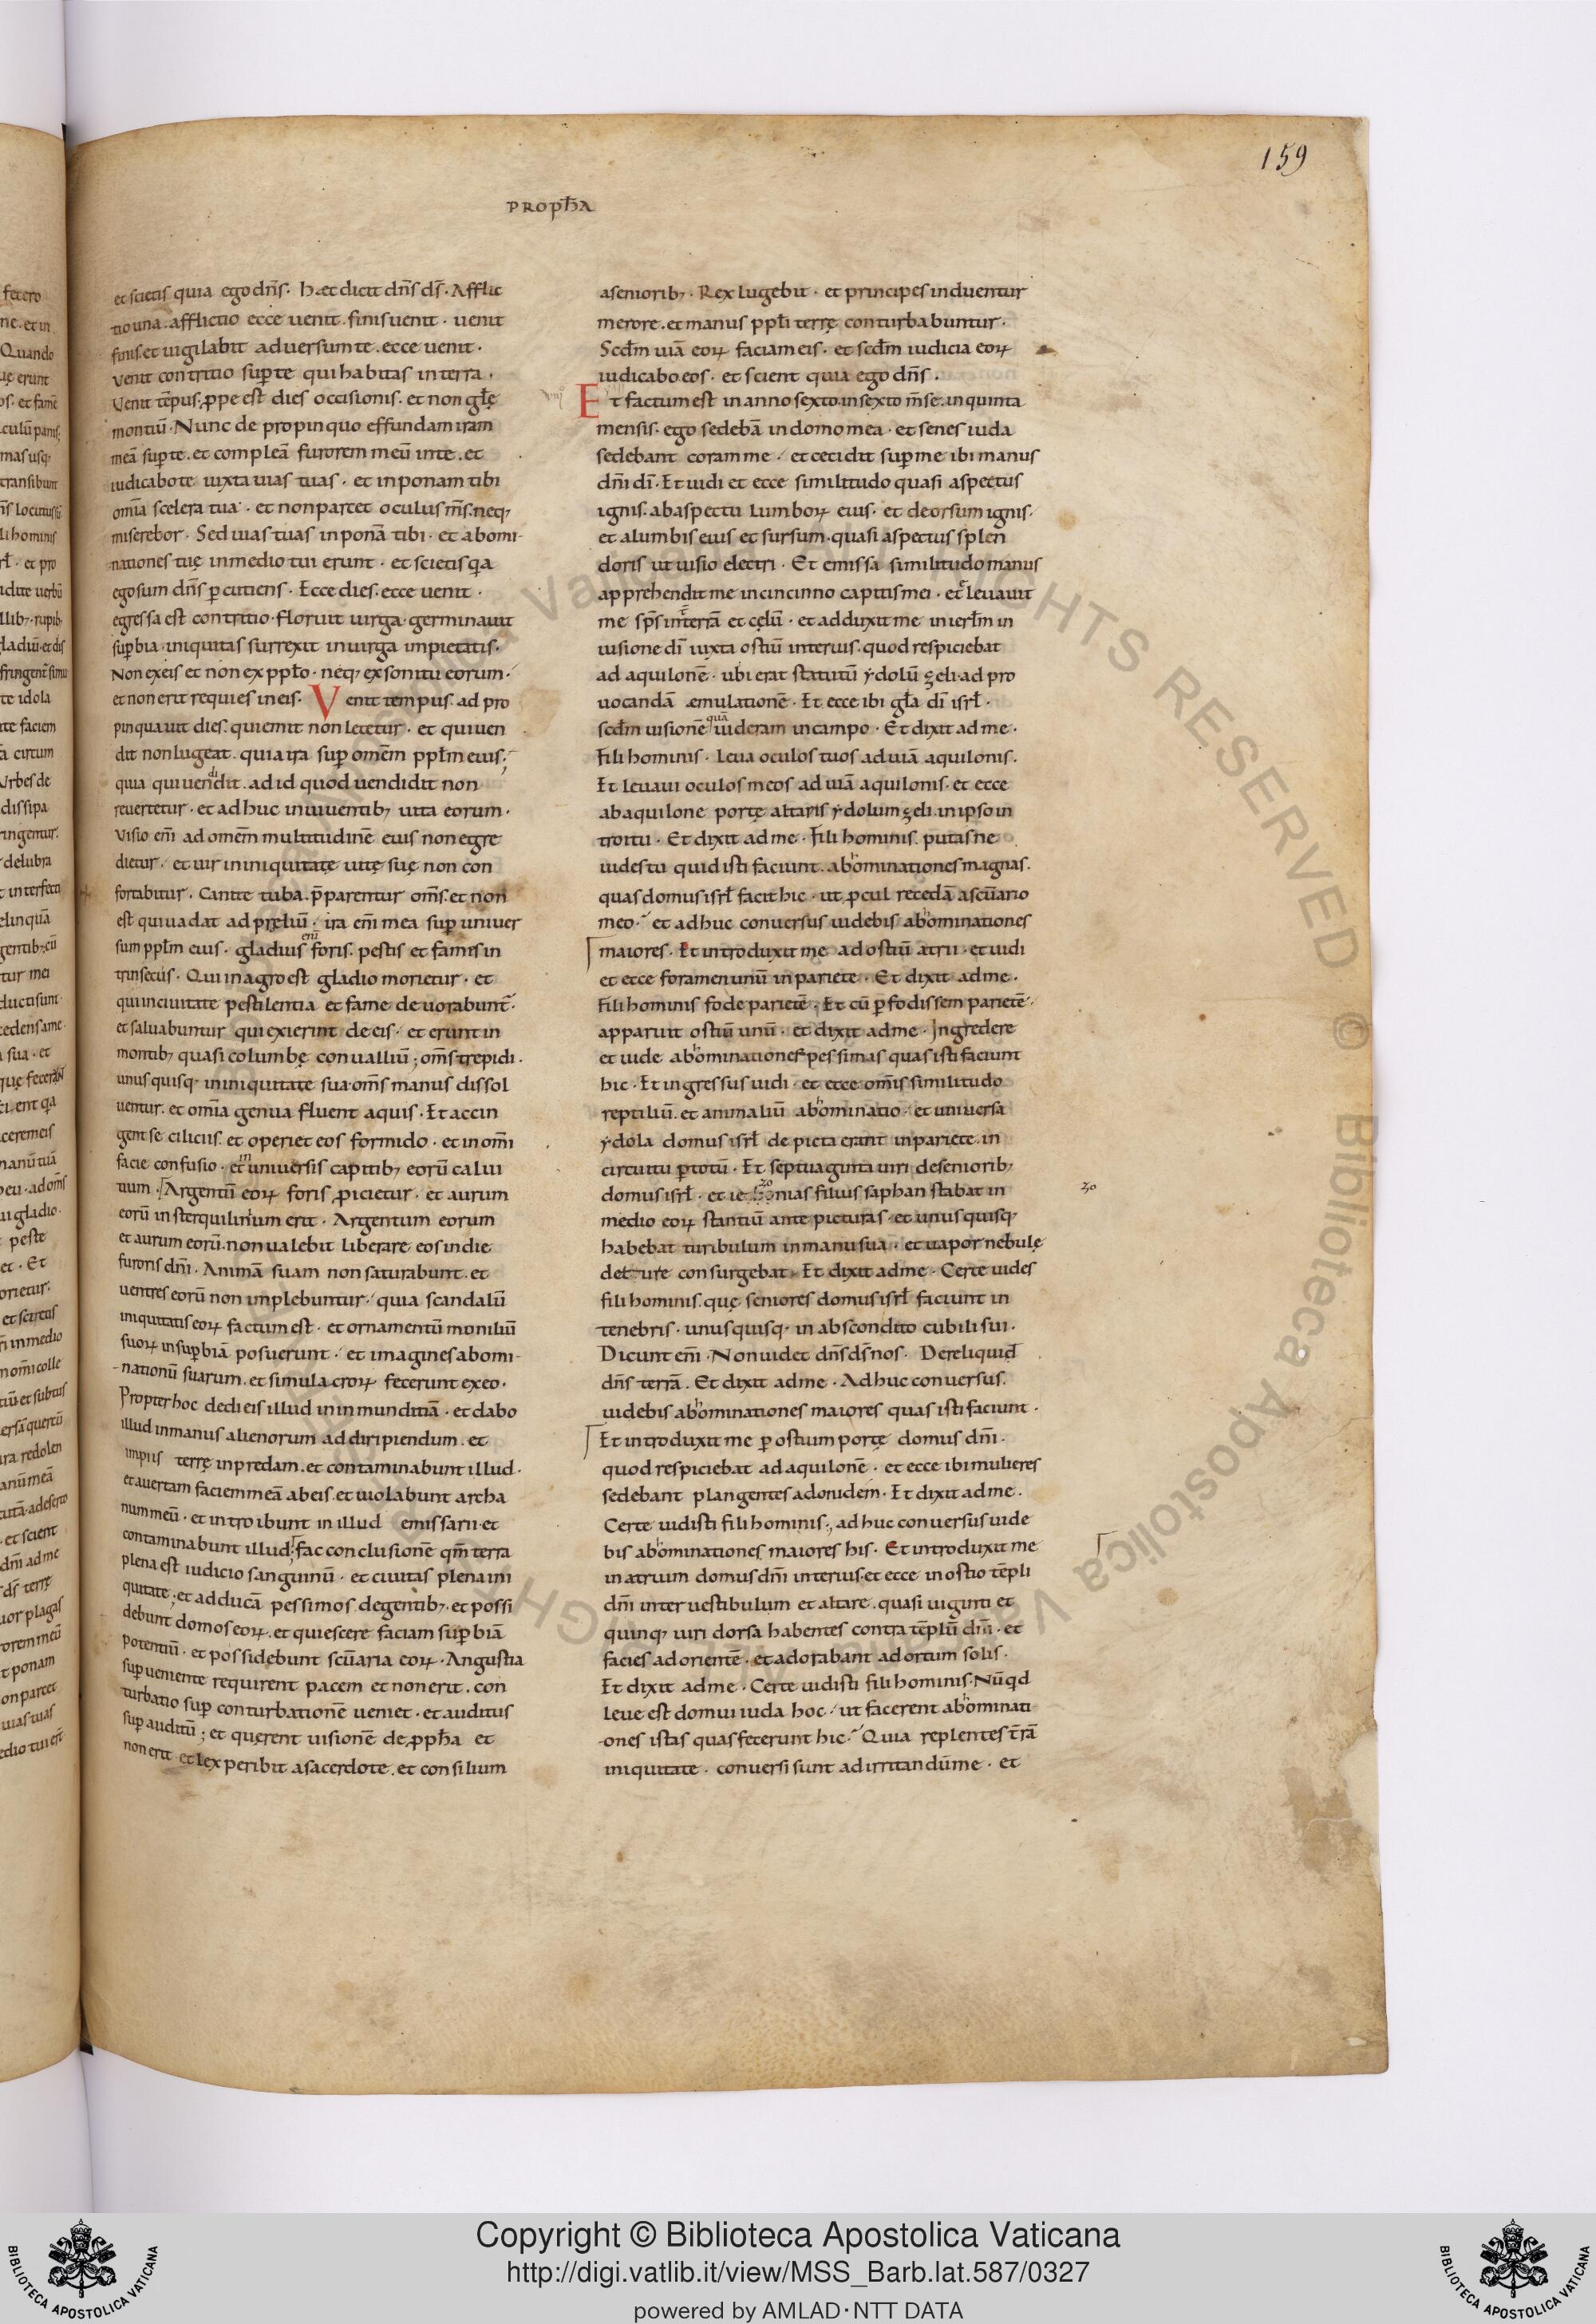 159
PROPH̄A
et scietis quia ego dn̄s. Hæc dicit dn̄s ds̄. Afflic
tio una. afflictio ecce uenit. finis uenit. uenit
finis. et uigilabit aduersum te. ecce uenit.
Venit contritio sup̄ te qui habitas in terra.
Venit tēpus. ꝓpe est dies occisionis. et non gl̄ę
montiū. Nunc de propinquo effundam iram
meā sup̄ te. et compleā furorem meū in te. et
iudicabo te iuxta uias tuas. et inponam tibi
omīa scelera tua. et non parcet oculus m̄s. neq;
miserebor. Sed uias tuas inponā tibi. et abomi-
nationes tuę in medio tui erunt. et scietis qa
ego sum dn̄s ꝑcutiens. Ecce dies. ecce uenit.
egressa est contritio. floruit uirga. germinauit
sup̄bia. iniquitas surrexit in uirga impietatis.
Non ex eis et non ex pplo. neq; ex sonitu eorum.
et non erit requies in eis. Venit tempus. ad pro
pinquauit dies. qui emit non letetur. et qui uen
dit non lugeat. quia ira sup̄ omēm ppl̄m eius.
quia qui uendit. ad id quod uendidit non
reuertetur. et adhuc in uiuentib; uita eorum.
Visio eni ad omēm multitudinē eius non egre
dietur. et uir in iniquitate uitę suę non con
fortabitur. Canite tuba. p̄parentur om̄s. et non
est qui uadat ad pręliū. ira eni mea sup̄ uniuer
sum ppl̄m eius. gladius foris. pestis et famis in
trinsecus. Qui in agro est gladio morietur. et
qui in ciuitate pestilentia et fame deuorabunt̄.
et saluabuntur qui exierint de eis. et erunt in
montib; quasi columbę conualliū; om̄s trepidi.
unusquisq; in iniquitate sua. om̄s manus dissol
uentur. et omīa genua fluent aquis. Et accin
gent se ciliciis. et operiet eos formido. et in omī
facie confusio. et in uniuersis capitib; eorū calui
tium. Argentū eoꝝ foris ꝓicietur. et aurum
eorū in sterquilinium erit. Argentum eorum
et aurum eorū. non ualebit liberare eos in die
furoris dn̄i. Animā suam non saturabunt. et
uentres eorū non implebuntur. quia scandalū
iniquitatis eoꝝ factum est. et ornamentū moniliū
suoꝝ in sup̄biā posuerunt. et imagines abomi-
-nationū suarum. et simulacroꝝ fecerunt ex eo.
Propter hoc dedi eis illud in inmunditiā. et dabo
illud in manus alienorum ad diripiendum. et
impiis terrę in predam. et contaminabunt illud.
et auertam faciem meā ab eis. et uiolabunt archa
num meū. et introibunt in illud emissarii. et
contaminabunt illud; fac conclusionē qm̄ terra
plena est iudicio sanguinū. et ciuitas plena ini
quitate; et adducā pessimos de gentib;. et possi
debunt domos eoꝝ. et quiescere faciam sup̄biā
potentiū. et possidebunt scūaria eoꝝ. Angustia
sup̄ueniente requirent pacem et non erit. con
turbatio sup̄ conturbationē ueniet. et auditus
sup̄ auditū; et querent uisionē de ꝓpħa et
non erit et lex peribit a sacerdote. et consilium
a seniorib;. Rex lugebit. et principes induentur
merore. et manus ppl̄i terrę conturbabuntur.
Scdm̄ uiā eoꝝ faciam eis. et scdm̄ iudicia eoꝝ
iudicabo eos. et scient quia ego dn̄s.
Et factum est in anno sexto. in sexto m̄se. in quinta
mensis. ego sedebā in domo mea. et senes iuda
sedebant coram me. et cecidit sup̄ me ibi manus
dn̄i dī. Et uidi et ecce similitudo quasi aspectus
ignis. ab aspectu lumboꝝ eius. et deorsum ignis.
et a lumbis eius et sursum. quasi aspectus splen
doris ut uisio electri. Et emissa similitudo manus
apprehendit me in cincinno capitis mei. et eleuauit
me sps̄ int̄ terrā et cęlū. et adduxit me in ierl̄m in
uisione dī iuxta ostiū interius. quod respiciebat
ad aquilonē. ubi erat statutū ydolū zeli. ad pro
uocandā emulationē. Et ecce ibi gl̄a dī isrl̄.
scdm̄ uisionē quā uideram in campo. Et dixit ad me.
Fili hominis. Leua oculos tuos ad uiā aquilonis.
Et leuaui oculos meos ad uiā aquilonis. et ecce
ab aquilone portę altaris ydolum zeli. in ipso in
troitu. Et dixit ad me. Fili hominis. putasne
uides tu quid isti faciunt. abhominationes magnas.
quas domus isrl̄ facit hic. ut ꝓcul recedā a scūario
meo. et adhuc conuersus uidebis abhominationes
maiores. Et introduxit me ad ostiū atrii. et uidi
et ecce foramen unū in pariete. Et dixit ad me.
Fili hominis fode parietē. Et cū ꝑfodissem parietē.
apparuit ostiū unū. et dixit ad me. Ingredere
et uide abhominationes pessimas quas isti faciunt
hic. Et ingressus uidi. et ecce om̄is similitudo
reptiliū. et animaliū abhominatio. et uniuersa
ydola domus isrl̄ depicta erant in pariete. in
circuitu ꝑ totū. Et septuaginta uiri de seniorib;
domus isrl̄. et iezonias filius saphan stabat in
medio eoꝝ stantiū ante picturas. et unusquisq;
habebat turibulum in manu sua. et uapor nebulę
de ture consurgebat. Et dixit ad me. Certe uides
fili hominis. quę seniores domus isrl̄ faciunt in
tenebris. unusquisq; in abscondito cubili sui.
Dicunt eni. Non uidet dn̄s ds̄ nos. Dereliquid
dn̄s terrā. Et dixit ad me. Adhuc conuersus
uidebis abhominationes maiores quas isti faciunt.
Et introduxit me ꝑ ostium portę domus dn̄i.
quod respiciebat ad aquilonē. et ecce ibi mulieres
sedebant plangentes adonidem. Et dixit ad me.
Certe uidisti fili hominis., adhuc conuersus uide
bis abhominationes maiores his. Et introduxit me
in atrium domus dn̄i interius. et ecce in ostio tēpli
dn̄i inter uestibulum et altare. quasi uiginti et
quinq; uiri dorsa habentes contra tēplū dn̄i. et
facies ad orientē. et adorabant ad ortum solis.
Et dixit ad me. Certe uidisti fili hominis. Nūqd
leue est domui iuda hoc. ut facerent abhominati-
-ones istas quas fecerunt hic. Quia replentes t̄rā
iniquitate. conuersi sunt ad irritandū me. et
Copyright © Biblioteca Apostolica Vaticana
http://digi.vatlib.it/view/MSS_Barb.lat.587/0327
powered by AMLAD·NTT DATA